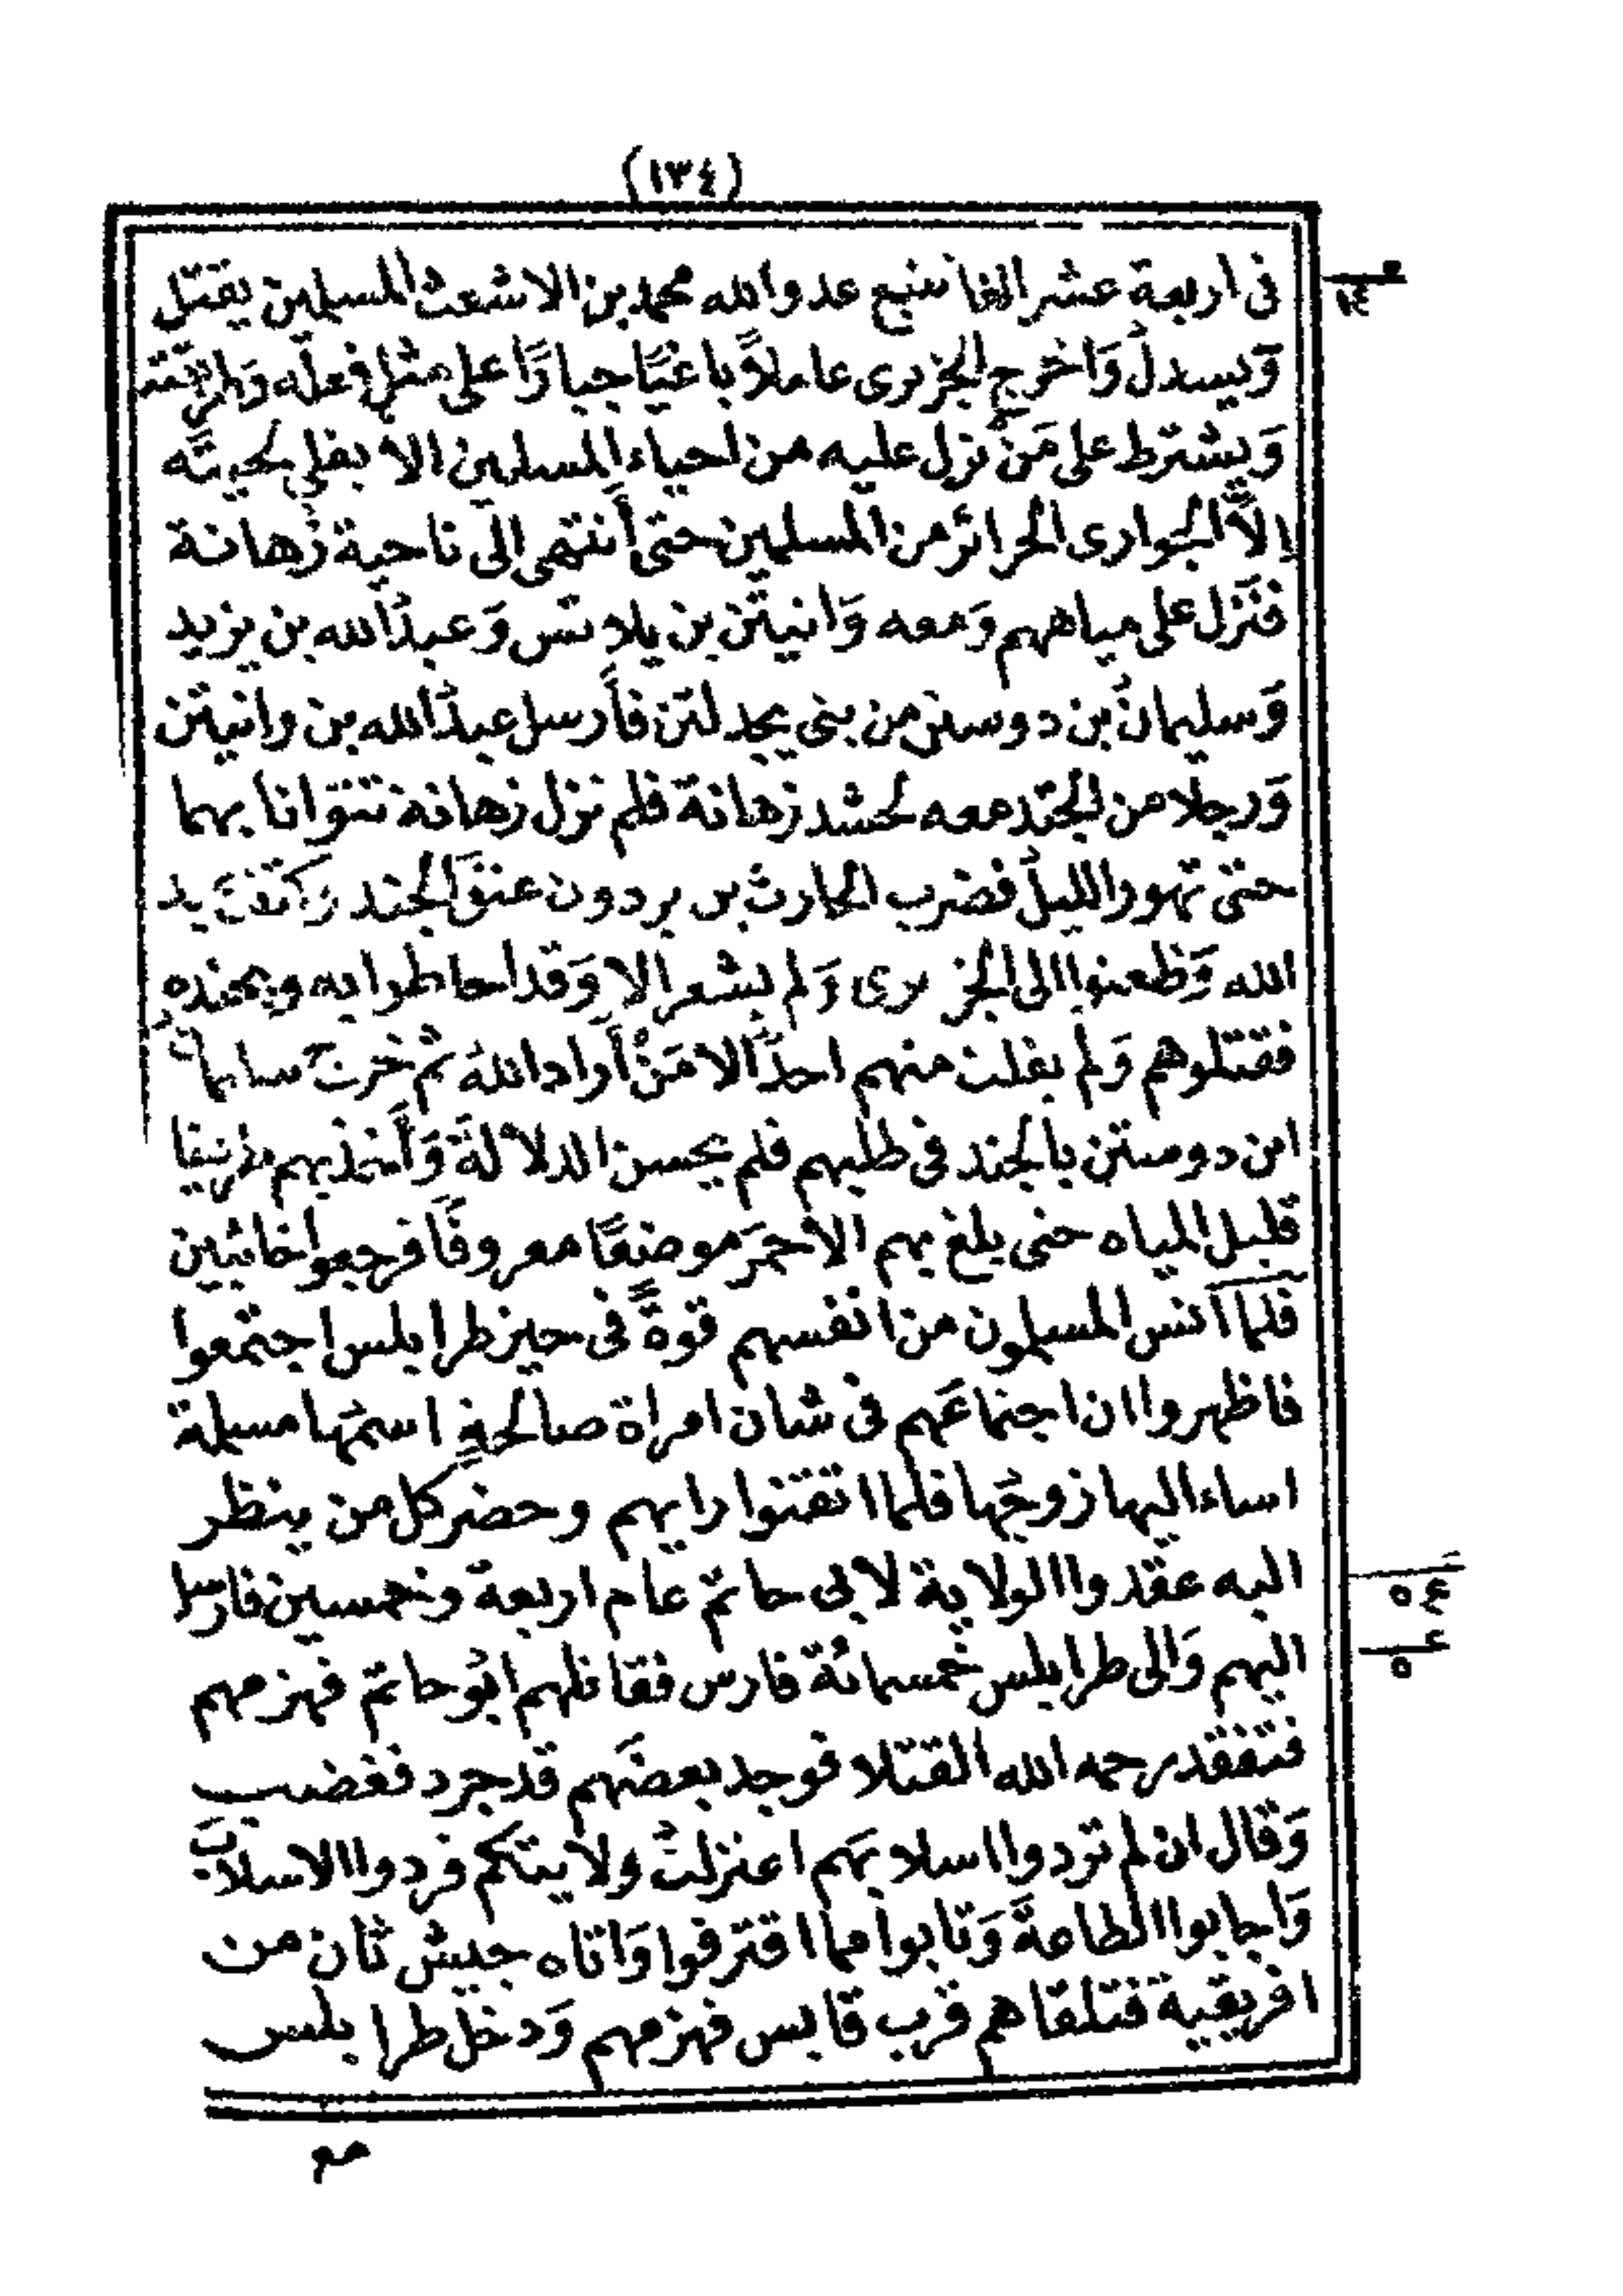 (١٣٤)
فى اربعة عشر الفا تتبع عدو الله محمد بن الاشعث المسلمين يقتل
وَيسدل وَاخرج الجزيرى عاملاً باغيًا جبارًا على مثل فعله
وَيشترط على مَنْ نزل عليه من احياء المسلمين الا يفلى لحيته
إلاَّ الجوارى الحرائر من المسلمين حتى أنتهى الى ناحية زهانة
فنَزل على مياههم وَمعه وَانيتن بن يلاتس وَعبدُ الله بن يزيد
وَسليمانُ بن دوستن من بنى يجدلتن فأرسل عبدُ الله بن وانيتن
وَرجلا من الجند معه لحشد زهانة فلم نزل زهانة تتوانا بهما
حتى تهور الليل فضرب الحارث بن بردون عنقَ الجند يد
الله وَظعنوا الى الجزيرى وَلم يشعر الا وَقد احاطوا به وبجنده
فقتلوهم وَلم يفلت منهم احدٌ الا مَنْ أراد اللهُ ثم خرج سليمان
ابن دوستن بالجند فى طلبهم فلم يحسن الدلالةَ وَأخذ بهم طريقا
قليل المياه حتى بلغ بهم الاحمرَ موضعًا معروفًا فرجعوا خائبين
فلما آنس المسلمون من انفسهم قوةً فى حيز طرابلس اجتمعوا
فاظهروا ان اجتماعَهم فى شان امراة صالحةٍ اسمُها مسيلة
اساء اليها زوجُها فلما اتقنوا رايهم وحضر كل من ينظر
اليه عقدوا الولاية لابى حاتم عام اربعة وخمسين فارسل
اليهم وَالى طرابلس خمسمائة فارس فقاتلهم ابُو حاتم فهزمهم
فتفقد رحمه الله القتلا فوجد بعضَهم قد جرد فغضب
وَقال ان لم تردوا اسلابَهم اعتزلتُ ولايتكم فردوا الاسلابَ
وَاجابوا الطاعةَ وَتابوا مما اقترفوا وَاتاه جيش ثان من
افريقية فتلقاهم قرب قابس فهزمهم وَدخل طرابلس
مع
١٤
٥٤
٥